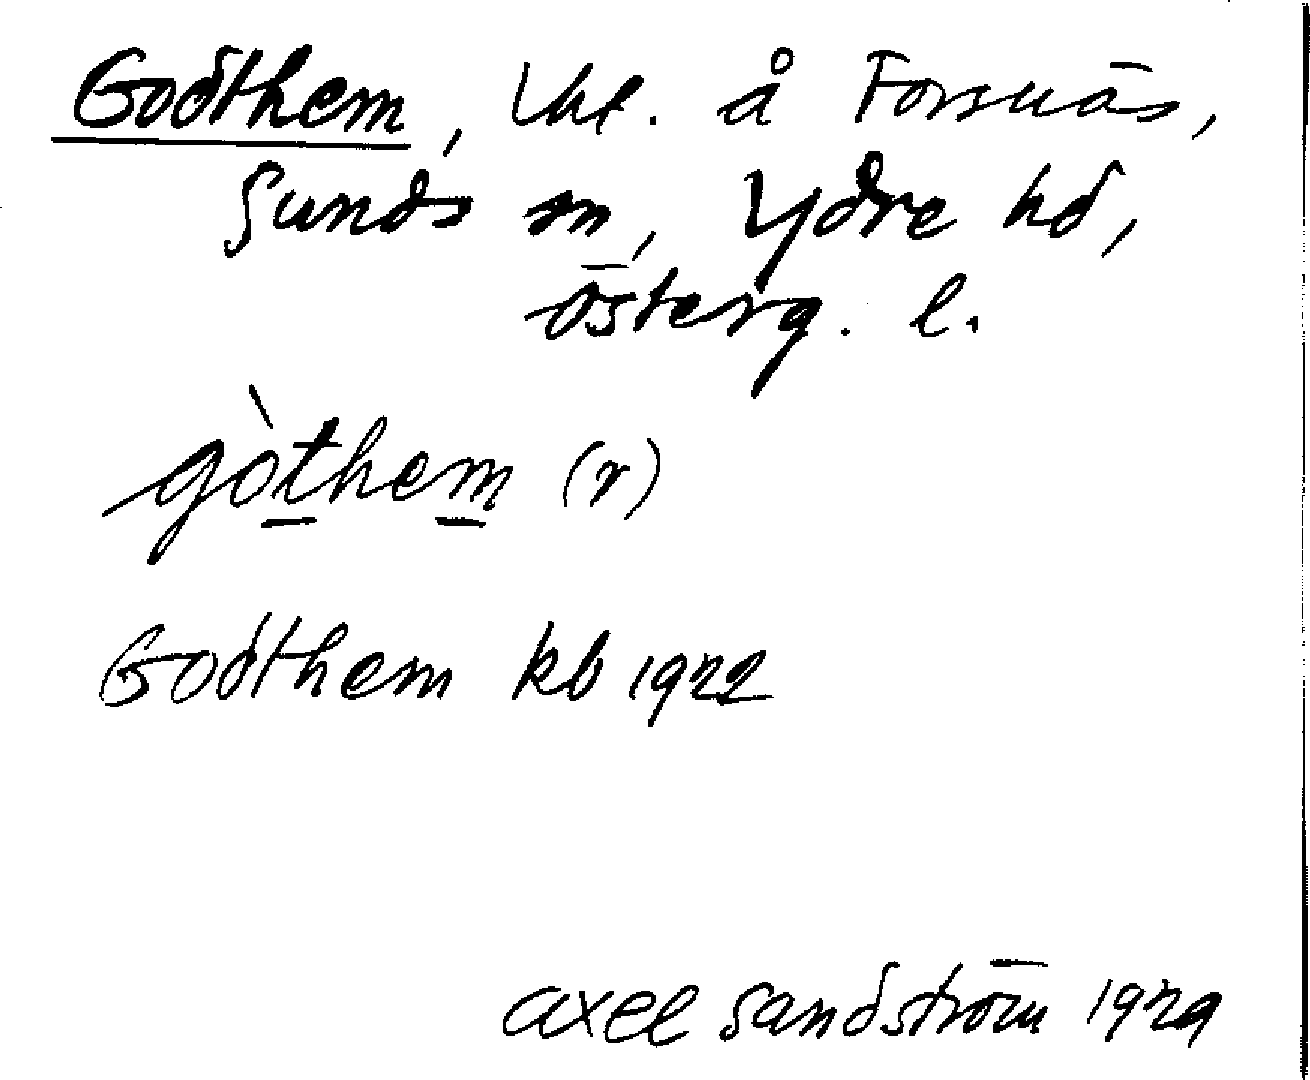 Godthem, Uht. å Forsnäs,
Sunds sn, Ydre hd,
Österg. l.
gòthem (r)
Godthem kb 1922
Axel Sandström 1929